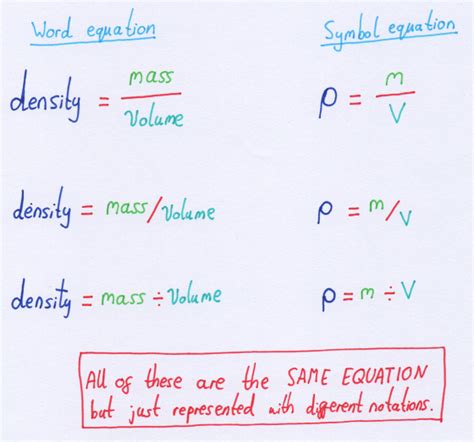 Word equation Symbol equation
density = mass/Volume ρ = m/V
density = mass/Volume ρ = m/V
density = mass ÷ Volume ρ = m ÷ V
All of these are the SAME EQUATION
but just represented with different notations.